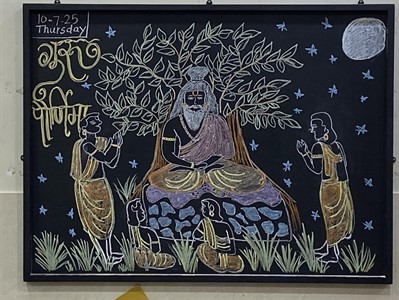 10-7-25
Thursday
गुरु
पौर्णिमा